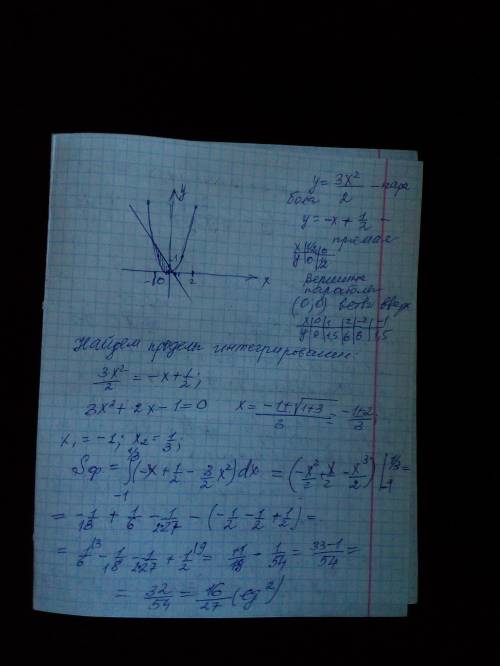 y
x
0
1
2
y = 3x²/2 - пара
бола
y = -x + 1/2 -
прямая
x | 1/2 | 0
y | 0 | 1/2
вершина
параболы
(0,0) ветви вверх
x | 0 | 1 | 2 | -2 | -1
y | 0 | 1,5 | 6 | 6 | 1,5
Найдем пределы интегрирования:
3x²/2 = -x + 1/2;
3x² + 2x - 1 = 0 x = (-1 ± √(1+3))/3 = (-1±2)/3;
x₁ = -1; x₂ = 1/3;
Sф = ∫₋₁^(1/3) (-x + 1/2 - 3/2 x²) dx = (-x²/2 + x/2 - x³/2) |₋₁^(1/3) =
= -1/18 + 1/6 - 1/2·27 - (-1/2 - 1/2 + 1/2) =
= 1/6 - 1/18 - 1/2·27 + 1/2 = 11/18 - 1/54 = (33-1)/54 =
= 32/54 = 16/27 (ед²)